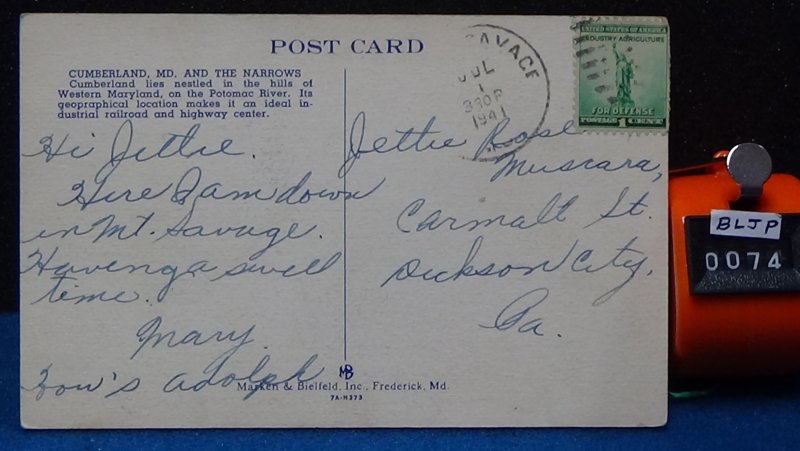 POST CARD
CUMBERLAND, MD. AND THE NARROWS
Cumberland lies nestled in the hills of
Western Maryland, on the Potomac River. Its
geographical location makes it an ideal in-
dustrial railroad and highway center.
Hi Jettie.
Here I am down
in Mt. Savage.
Havenga swell
time.
Mary.
How's adolph
SAVAGE
JUL
1
330P
1941
UNITED STATES OF AMERICA
INDUSTRY AGRICULTURE
FOR DEFENSE
POSTAGE 1 CENT
Jettie Rose
Muscara,
Carmalt St.
Dickson City,
Pa.
MB
Marken & Bielfeld, Inc., Frederick, Md.
7A-H373
BLJP
0074